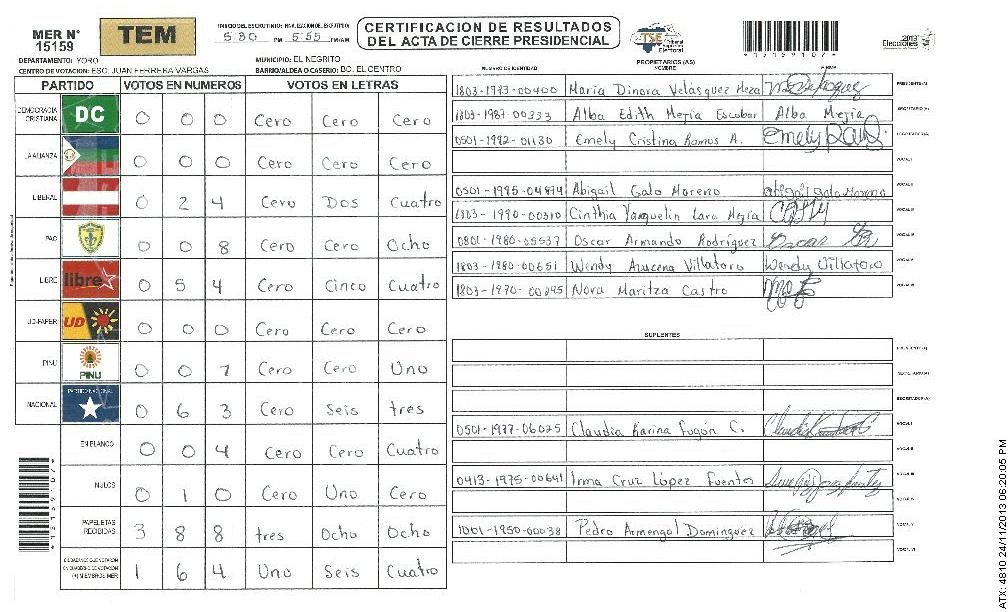 MER N° 15159
TEM
INICIO DEL ESCRUTINIO: 5:30 PM 5:55 PM/AM
CERTIFICACION DE RESULTADOS
DEL ACTA DE CIERRE PRESIDENCIAL
TSE Tribunal Supremo Electoral
*15159107*
2013 Elecciones
DEPARTAMENTO: YORO
MUNICIPIO: EL NEGRITO
CENTRO DE VOTACION: ESC. JUAN FERRERA VARGAS
BARRIO/ALDEA O CASERIO: BO. EL CENTRO
PARTIDO VOTOS EN NUMEROS VOTOS EN LETRAS
DEMOCRACIA CRISTIANA DC 0 0 0 Cero Cero Cero
LA ALIANZA 0 0 0 Cero Cero Cero
LIBERAL 0 2 4 Cero Dos Cuatro
PAC 0 0 8 Cero Cero Ocho
LIBRE libre 0 5 4 Cero Cinco Cuatro
UD-FAPER UD 0 0 0 Cero Cero Cero
PINU PINU 0 0 1 Cero Cero Uno
NACIONAL PARTIDO NACIONAL 0 6 3 Cero Seis tres
EN BLANCO 0 0 4 Cero Cero Cuatro
NULOS 0 1 0 Cero Uno Cero
PAPELETAS RECIBIDAS 3 8 8 tres Ocho Ocho
(+) MIEMBROS MER 1 6 4 Uno Seis Cuatro
PROPIETARIOS (AS)
NUMERO DE IDENTIDAD NOMBRE FIRMA
1803-1973-00400 Maria Dinora Velasquez Meza PRESIDENTE(A)
1803-1987-00333 Alba Edith Mejia Escobar Alba Mejia SECRETARIO(A)
0501-1992-01130 Emely Cristina Ramos A. ESCRUTADOR(A)
VOCAL I
0501-1985-04874 Abigail Galo Moreno Abigail Galo Moreno VOCAL II
1803-1990-00310 Cinthia Yaquelin Lara Mejia VOCAL III
0801-1980-05537 Oscar Armando Rodriguez VOCAL IV
1803-1980-00651 Wendy Azucena Villatoro Wendy Villatoro VOCAL V
1803-1970-00295 Nora Maritza Castro VOCAL VI
SUPLENTES
PRESIDENTE(A)
SECRETARIO(A)
ESCRUTADOR(A)
0501-1977-06025 Claudia Karina Fugón C. VOCAL I
VOCAL II
0413-1975-00641 Irma Cruz López Fuentes VOCAL III
VOCAL IV
1001-1950-00038 Pedro Armengol Dominguez VOCAL V
VOCAL VI
*15159107*
ATX: 4810 24/11/2013 06:20:05 PM